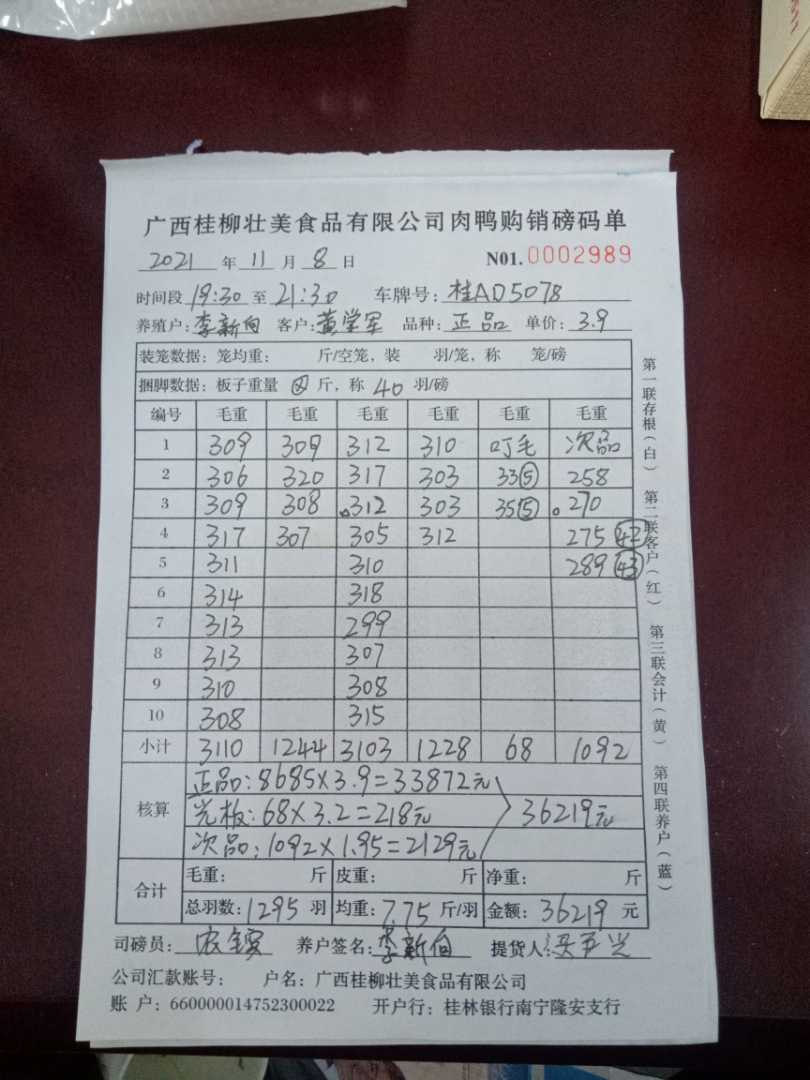 广西桂柳壮美食品有限公司肉鸭购销磅码单
2021 年 11 月 8 日 N01.0002989
时间段 19:30 至 21:30 车牌号: 桂AD5078
养殖户: 李新向 客户: 黄学军 品种: 正品 单价: 3.9
装笼数据: 笼均重: 斤/空笼, 装 羽/笼, 称 笼/磅
捆脚数据: 板子重量 斤, 称 40 羽/磅
编号 毛重 毛重 毛重 毛重 毛重 毛重
1 309 309 312 310 叮毛 次品
2 306 320 317 303 33⑤ 258
3 309 308 312 303 35⑤ 270
4 317 307 305 312 275 ㊷
5 311 310 289 ㊸
6 314 318
7 313 299
8 313 307
9 310 308
10 308 315
小计 3110 1244 3103 1228 68 1092
核算
正品: 8685×3.9=33872元
光板: 68×3.2=218元 36219元
次品: 1092×1.95=2129元
合计
毛重: 斤 皮重: 斤 净重: 斤
总羽数: 1295 羽 均重: 7.75 斤/羽 金额: 36219 元
司磅员: 养户签名: 李新向 提货人:
公司汇款账号: 户名: 广西桂柳壮美食品有限公司
账 户: 660000014752300022 开户行: 桂林银行南宁隆安支行
第一联存根(白) 第二联客户(红) 第三联会计(黄) 第四联养户(蓝)